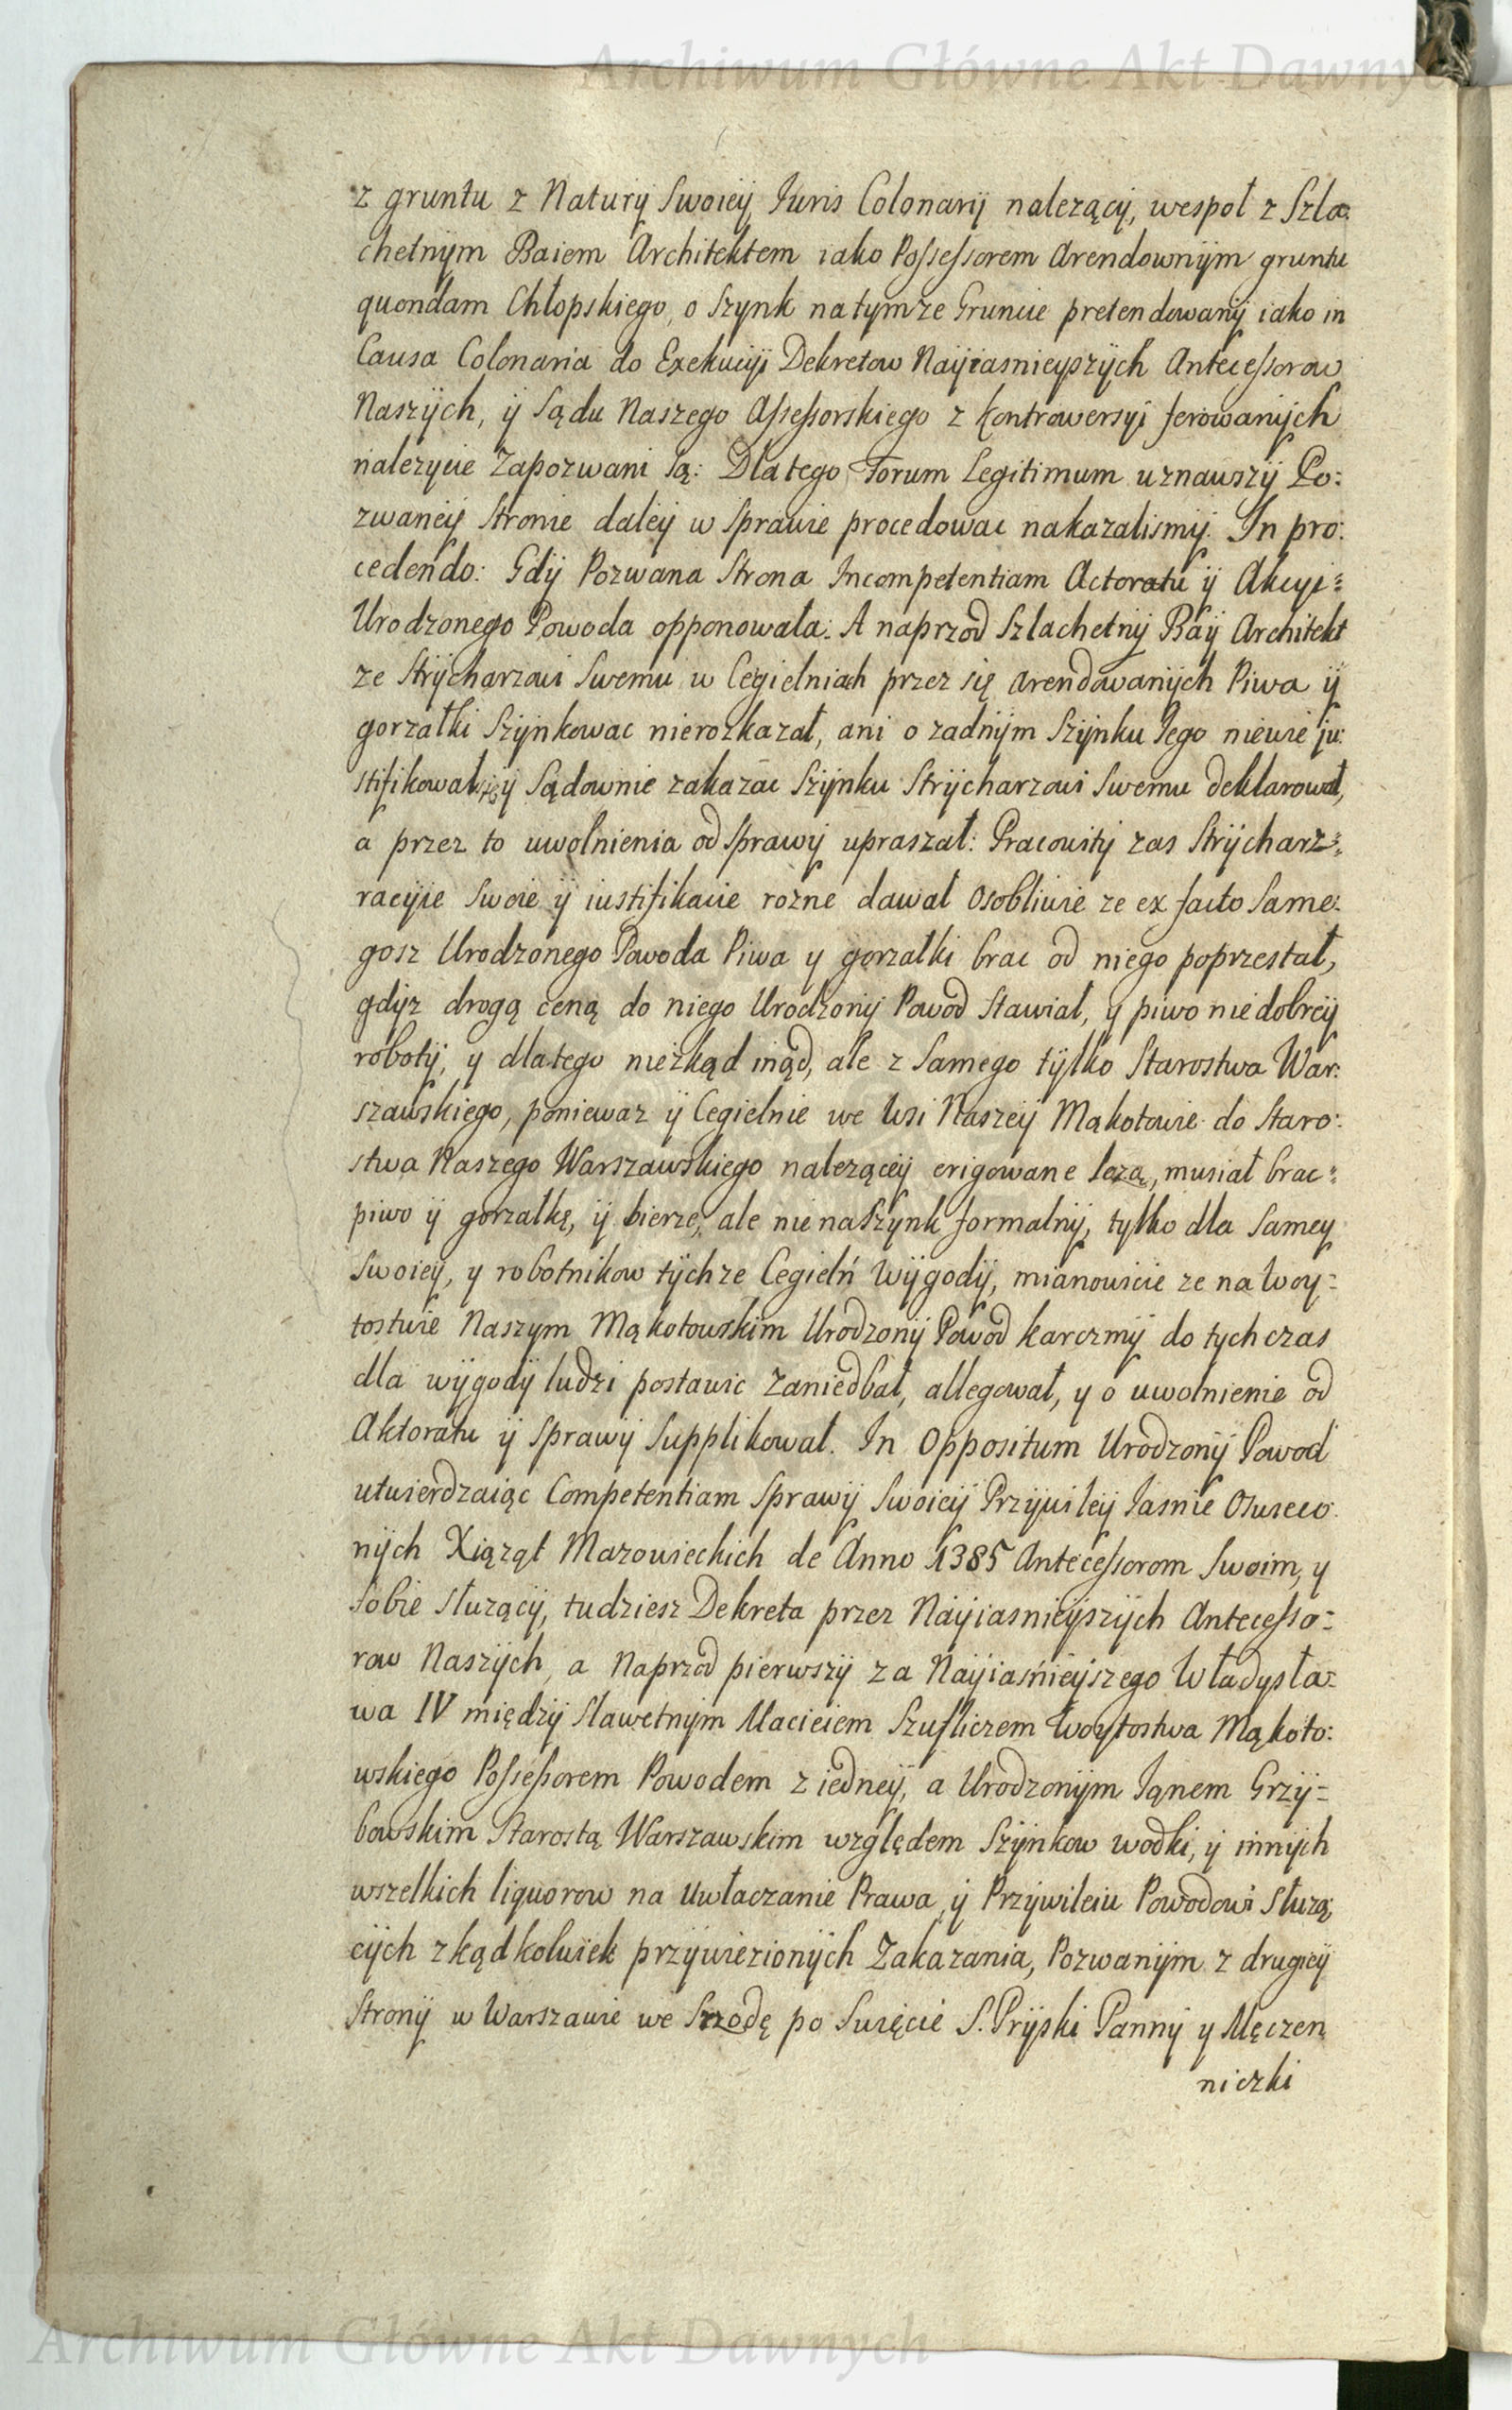 Archiwum Główne Akt Dawnych
z gruntu z Natury Swoiey Iuris Colonarij nalezący, wespoł z Szla:
chetnym Baiem Architektem iako Possessorem Arendownym gruntu
quondam Chłopskiego, o Szynk na tymze Gruncie pretendowany iako in
Causa Colonaria do Exekucyi Dekretow Nayiasnieyszych Antecessorow
Naszych, y Sądu Naszego Assessorskiego z kontrowersyi ferowanych
nalezycie Zapozwani są: Dlatego Forum Legitimum uznawszy Po:
zwaney Stronie daley w Sprawie procedowac nakazalismy. In pro:
cedendo: Gdy Pozwana Strona Incompetentiam Actoratu y Akcyi
Urodzonego Powoda opponowała: A naprzod Szlachetny Bay Architekt
ze Strycharzowi Swemu w Cegielniach przez się arendowanych Piwa y
gorzałki Szynkowac nierozkazał, ani o zadnym Szynku Jego niewie ju:
stifikował się y Sądownie zakazac Szynku Strycharzowi Swemu deklarował,
a przez to uwolnienia od Sprawy upraszał: Pracowity zas Strycharz
racyie Swoie y iustifikacie rozne dawał Osobliwie ze ex facto Same:
gosz Urodzonego Powoda Piwa y gorzałki brac od niego poprzestał,
gdyz drogą ceną do niego Urodzony Powod Stawiał, y piwo nie dobrey
roboty, y dlatego niezkąd inąd, ale z Samego tylko Starostwa War:
szawskiego, poniewaz y Cegielnie we Wsi Naszey Mąkotowie do Staro:
stwa Naszego Warszawskiego nalezącey erigowane lezą, musiał brac
piwo y gorzałkę, y bierze, ale nie na Szynk formalny, tylko dla Samey
Swoiey, y robotnikow tychze Cegielń Wygody, mianowicie ze na Woy:
tostwie Naszym Mąkotowskim Urodzony Powod karczmy do tych czas
dla wygody ludzi postawic Zaniedbał, allegował, y o uwolnienie od
Aktoratu y Sprawy Supplikował. In Oppositum Urodzony Powod
utwierdzaiąc Competentiam Sprawy Swoiey Przywiley Jasnie Oswieco:
nych Xiąząt Mazowieckich de Anno 1385 Antecessorom Swoim, y
Sobie słuzący, tudziesz Dekreta przez Nayiasnieyszych Antecesso:
row Naszych, a Naprzod pierwszy za Nayiaśnieyszego Władysła:
wa IV między Sławetnym Maciciem Szufliczem Woytostwa Mąkoto:
wskiego Possessorem Powodem z iedney, a Urodzonym Janem Grzy:
bowskim Starostą Warszawskim względem Szynkow wodki, y innych
wszelkich liquorow na Uwłaczanie Prawa y Przywileiu Powodowi Słuzą:
cych zkądkolwiek przywiezionych Zakazania, Pozwanym z drugiey
Strony w Warszawie we Srzodę po Swięcie S. Pryski Panny y Męczen
niczki
Archiwum Główne Akt Dawnych